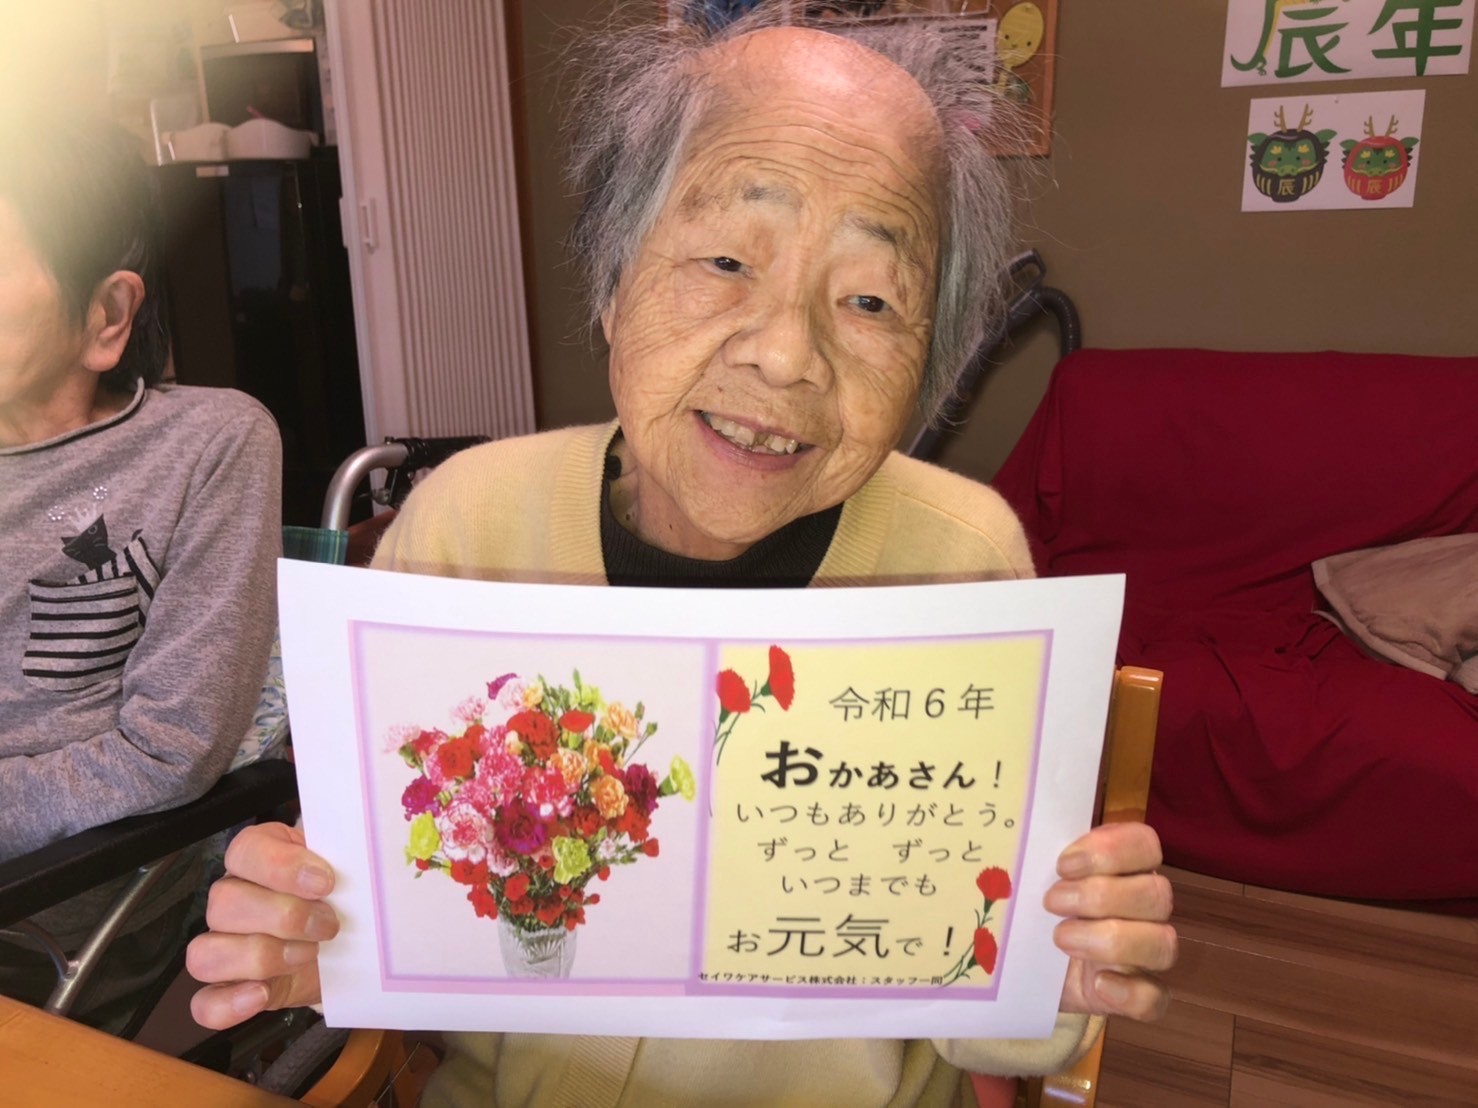 辰年
辰
辰
令和６年
おかあさん！
いつもありがとう。
ずっと　ずっと
いつまでも
お元気で！
セイワケアサービス株式会社：スタッフ一同